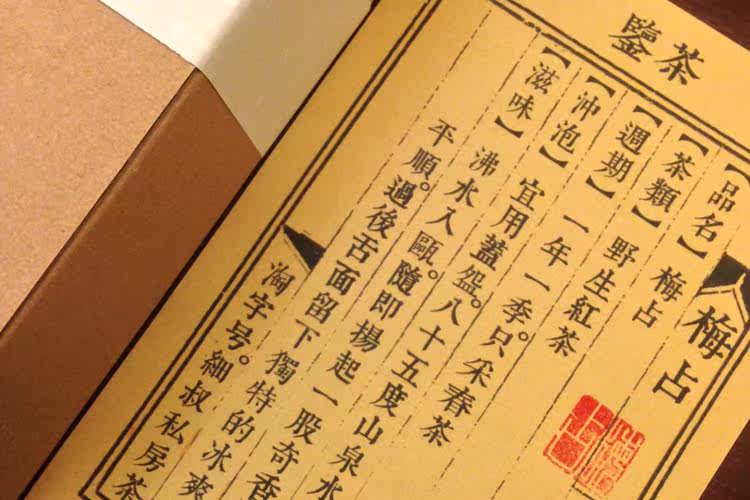 茶鑒
梅占
【品名】梅占
【茶類】野生紅茶
【週期】一年一季。只采春茶
【沖泡】宜用蓋盌。八十五度山泉水
【滋味】沸水入甌。隨即揚起一股奇香
平順。過後舌面留下獨特的冰爽
字号。細叔私房茶